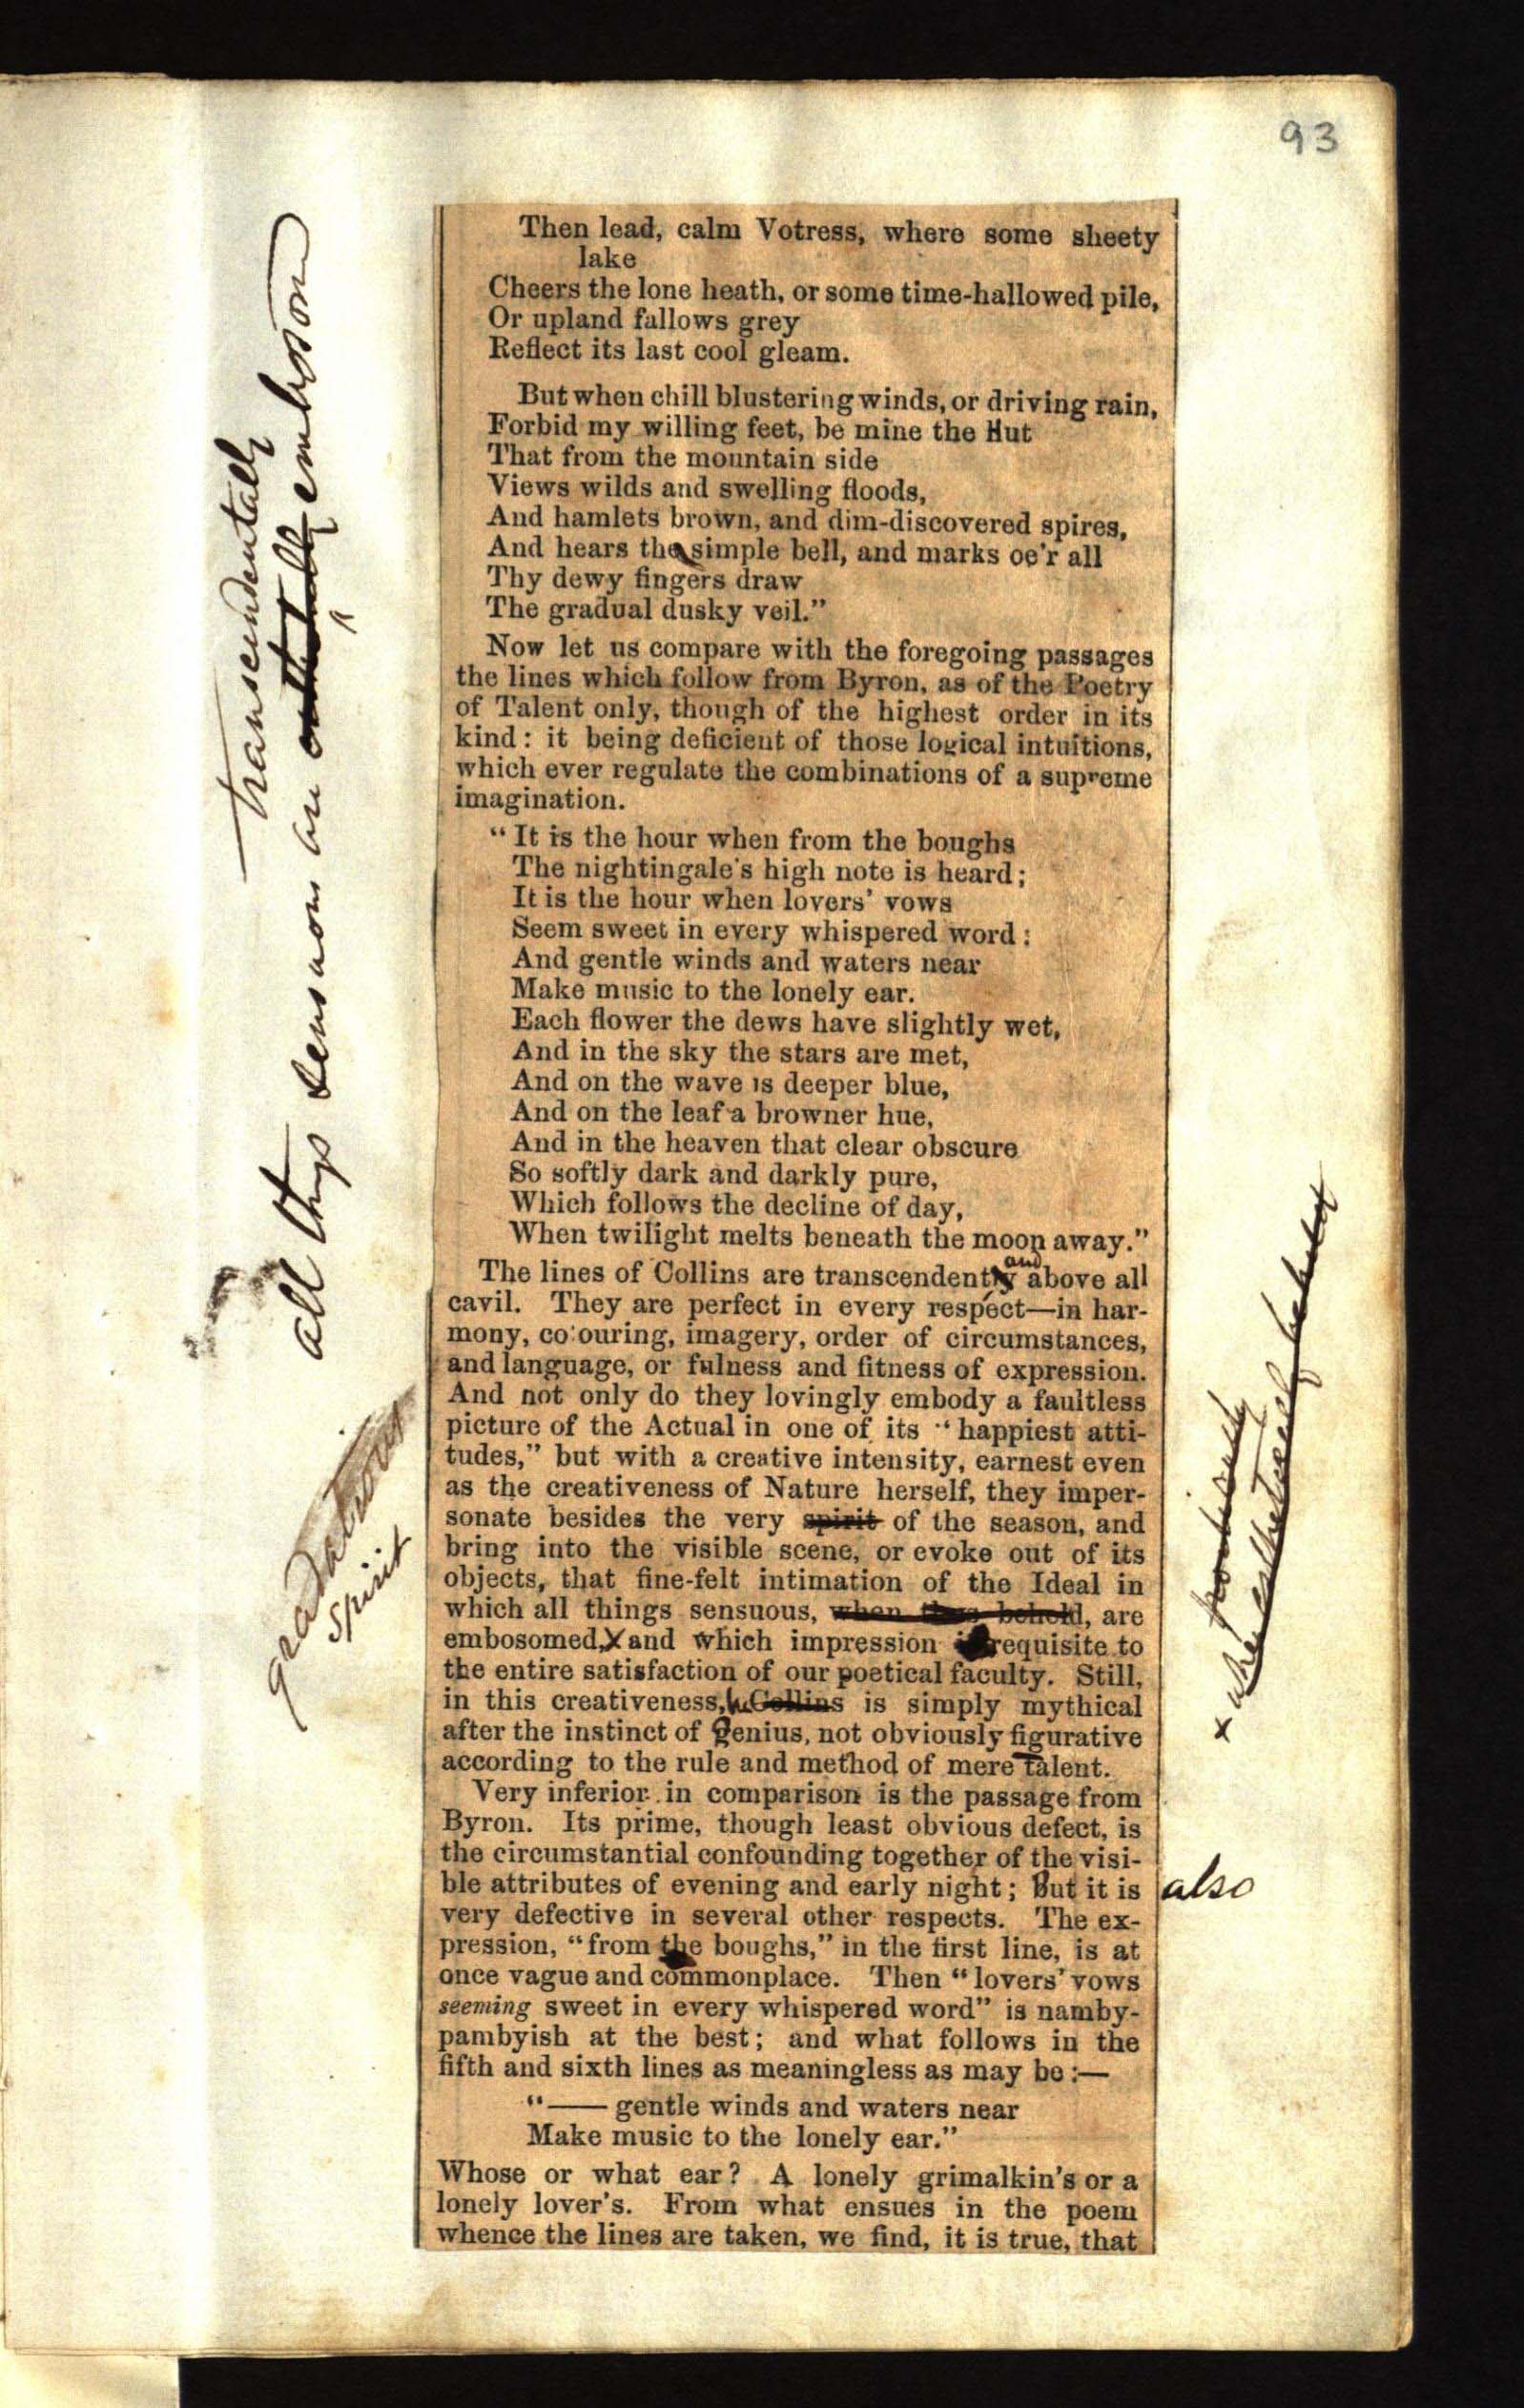 93
Then lead, calm Votress, where some sheety
lake
Cheers the lone heath, or some time-hallowed pile,
Or upland fallows grey
Reflect its last cool gleam.
But when chill blustering winds, or driving rain,
Forbid my willing feet, be mine the Hut
That from the mountain side
Views wilds and swelling floods,
And hamlets brown, and dim-discovered spires,
And hears the simple bell, and marks oe'r all
Thy dewy fingers draw
The gradual dusky veil."
Now let us compare with the foregoing passages
the lines which follow from Byron, as of the Poetry
of Talent only, though of the highest order in its
kind: it being deficient of those logical intuitions,
which ever regulate the combinations of a supreme
imagination.
"It is the hour when from the boughs
The nightingale's high note is heard;
It is the hour when lovers' vows
Seem sweet in every whispered word:
And gentle winds and waters near
Make music to the lonely ear.
Each flower the dews have slightly wet,
And in the sky the stars are met,
And on the wave is deeper blue,
And on the leaf a browner hue,
And in the heaven that clear obscure
So softly dark and darkly pure,
Which follows the decline of day,
When twilight melts beneath the moon away."
and
The lines of Collins are transcendently above all
cavil. They are perfect in every respect—in har-
mony, colouring, imagery, order of circumstances,
and language, or fulness and fitness of expression.
And not only do they lovingly embody a faultless
picture of the Actual in one of its "happiest atti-
tudes," but with a creative intensity, earnest even
as the creativeness of Nature herself, they imper-
sonate besides the very spirit of the season, and
bring into the visible scene, or evoke out of its
objects, that fine-felt intimation of the Ideal in
which all things sensuous, when thus behold, are
embosomed, x and which impression is requisite to
the entire satisfaction of our poetical faculty. Still,
in this creativeness, he Collins is simply mythical
after the instinct of Genius, not obviously figurative
according to the rule and method of mere Talent.
Very inferior in comparison is the passage from
Byron. Its prime, though least obvious defect, is
the circumstantial confounding together of the visi-
ble attributes of evening and early night; But it is
also
very defective in several other respects. The ex-
pression, "from the boughs," in the first line, is at
once vague and commonplace. Then "lovers' vows
seeming sweet in every whispered word" is namby-
pambyish at the best; and what follows in the
fifth and sixth lines as meaningless as may be:—
"—— gentle winds and waters near
Make music to the lonely ear."
Whose or what ear? A lonely grimalkin's or a
lonely lover's. From what ensues in the poem
whence the lines are taken, we find, it is true, that
transcendentally
all things sensuous are embosom
gradations
spirit
x when